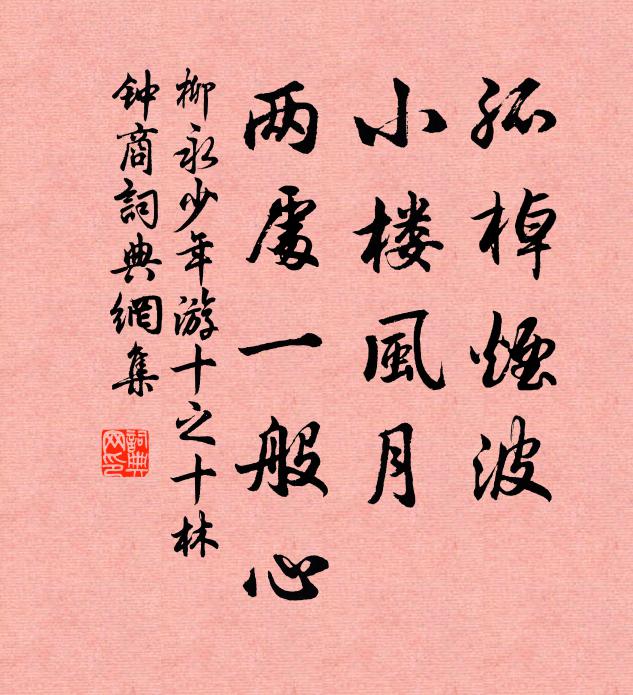 孤棹煙波
小楼風月
两處一般心
柳永少年游十之十林
钟商詞典網集
詞典
网印